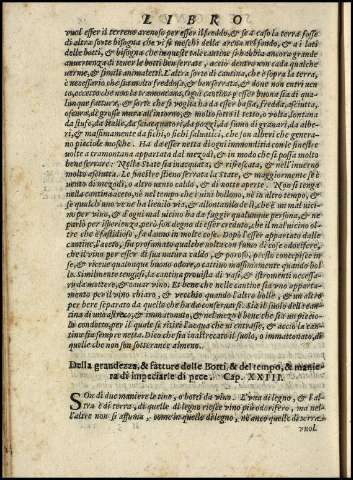 LIBRO
vuol esser il terreno arenoso per esser il fondo, & se a caso la terra fosse
di altra sorte bisogna che vi si meschi della arena nel fondo, & a i lati
delle botti, & bisogna che in queste tali cantine si habbia ancora grande
auuertenza di tener le botti ben serrate, acciò dentro non cada qualche
uerme, & simili animaletti. L'altra sorte di cantina, che è sopra la terra,
è necessario che sia molto fredda, & ben serrata, & doue non entri uen
to, eccetto, che uno da tramontana, sia ò cantina ò
lunque fattura, & sorte che si voglia ha da esser bassa, fredda, asciutta,
oscura, di grosse mura all'intorno, & molto forti il tetto, o volta, lontana
da stufo, da stalle, da scaldatori, da poggi da fimo di granari, da albe
ri, & massimamente da fichi, o fichi saluatici, che son alberi che genera-
no picciole mosche. Ha da esser netta di ogni immonditia con le finestre
uolte a tramontana appartate dal mezodì, & in modo che si possa molto
bene serrare. Nella State sia inacquata, & rifrescata, & nell'inuerno
molto asciutta. Le finestre stieno serrate la State, & maggiormente se è
uento di mezodì, o altro uento caldo, & di notte aperte. Non si tenga
nella cantina aceto, nè nel tempo che i uini bollono, nè in altro tempo, &
se qualch'uno ve ne ha lieuilo via, & allontanilo de lì, che è un mal uici-
no per vino, & d'ogni mal uicino ha da fuggir qualunque persona, & ne
parlò per isperienza, però son degno di esser creduto, che il mal uicino ol-
tre che è fastidioso, fa danno in molte cose. Dopò l'esser appartato dalle
cantine l'aceto, sia profumato qualche uolta con fumo di cose odorifere,
che il vino per esser di sua natura caldo, & poroso, presto concepisce in
se, & riceue qualunque buono odore, o cattiuo massimamente quando bol
le. Similmente tengasi la cantina prouista di vasi, & istromenti necessa-
ry da mettere, & cauar vino. Et bene che nelle cantine sia vno apparta-
mento per il vino chiaro, & vecchio quando l'altro bolle, & un altro
per bere separato da quello che ha da conseruarsi. Sia il suolo della can-
tina di una , & immattonato, & nel mezo è bene che sia un piccio-
lo condutto, per il quale si ritiri l'acqua che ui entrasse, & acciò la can-
tina sia sempre netta. Dico che sia inastrecato il suolo, o immattonato, di
quelle che non son sotterranee almeno.
Della grandezza, & fatture delle Botti, & del tempo, & manie
ra di impeciarle di pece. Cap. XXIII.
SOn di due maniere le tino, o botti da vino. L'vna di legno, & l'al-
tra è di terra, di quelle di legno riesce vino più odorifero, ma nel-
l'altre non si assuma, come in quelle di legno, nè anco quelle di terra
vuol-